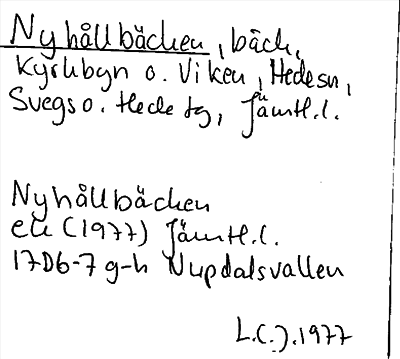 Nyhållbäcken, bäck,
Kyrkbyn o. Viken, Hedesn,
Svegs o. Hede tg, Jämtl.l.
Nyhållbäcken
ek (1977) Jämtl.l.
17D6-7 g-h Nupdalsvallen
L.C.J. 1977